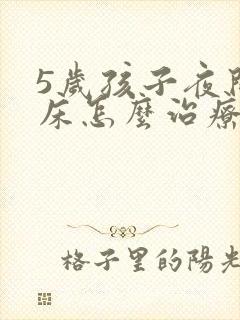 5歲孩子夜
床怎麼治療
格子里的陽光